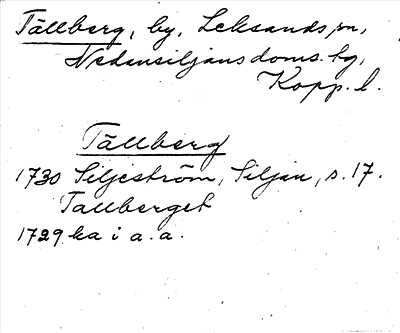 Tällberg, by, Leksands sn,
Nedansiljans doms. hg,
Kopp. l.
Tällberg
1730 Siljeström, Siljan, s. 17.
Tallberget
1729 ka i a. a.